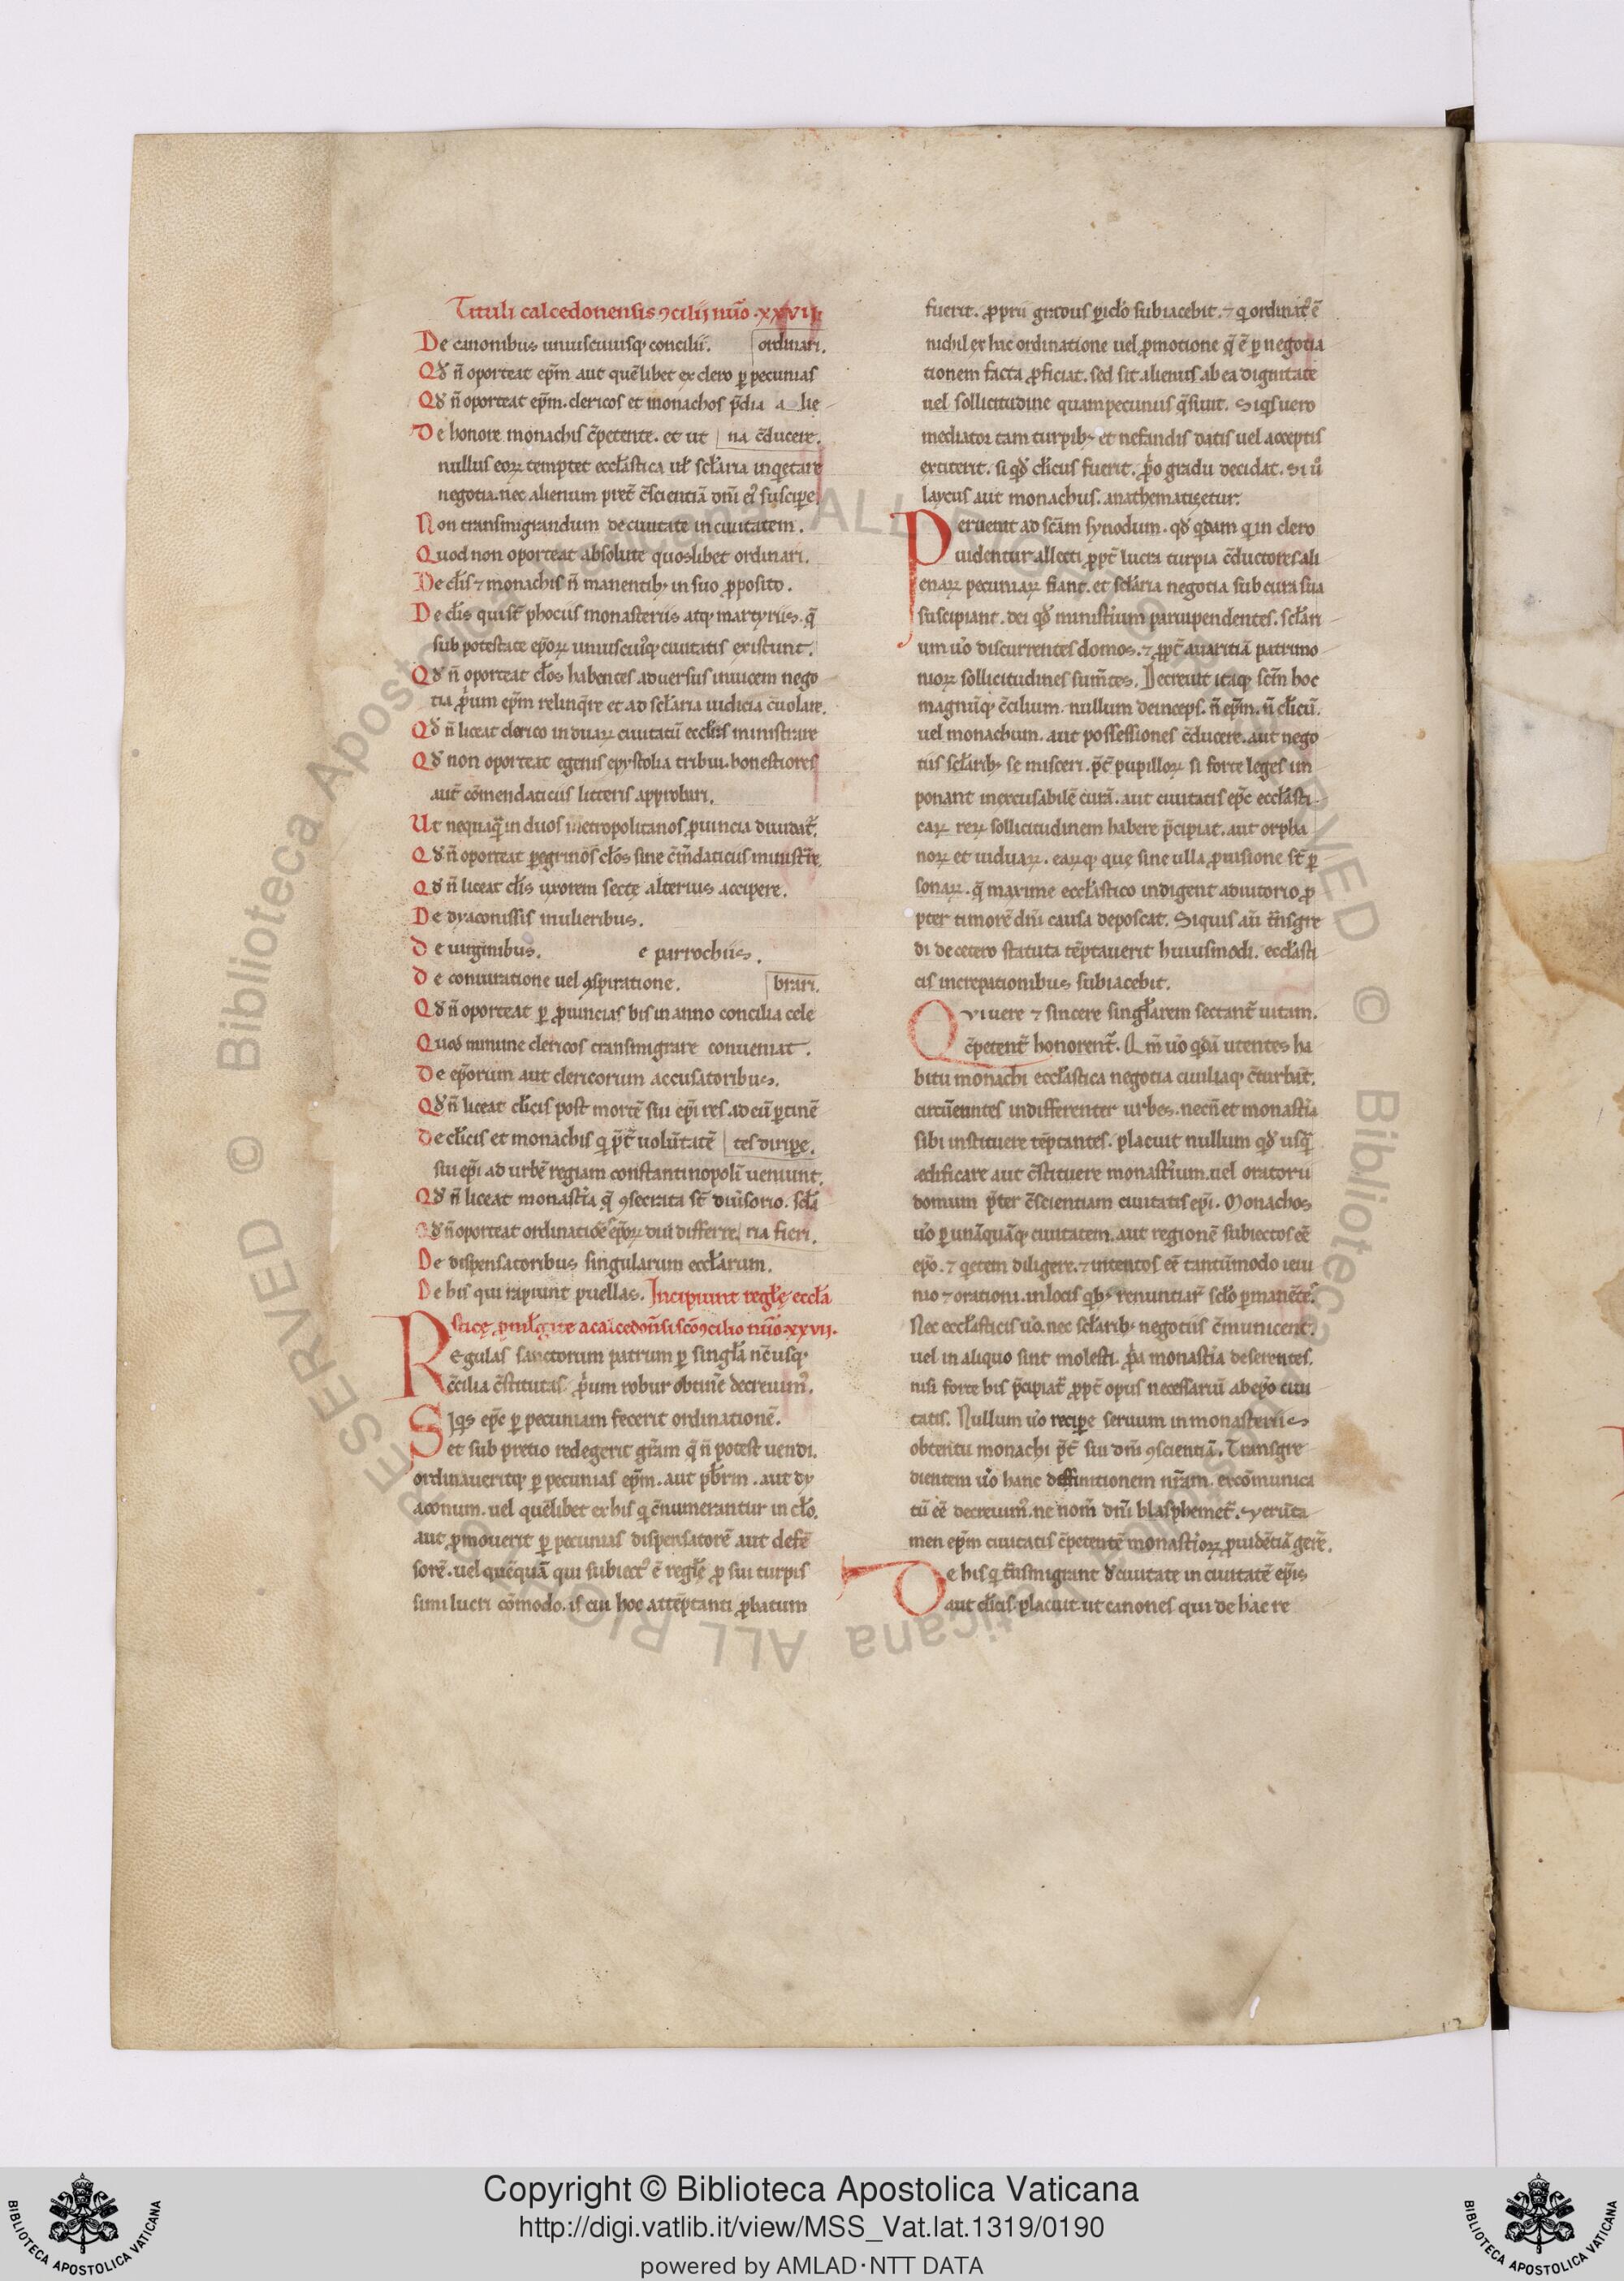 Tituli calcedonensis ꝯcilii nũo. xxvii.
De canonibus uniuscuiusq; concilii. ordinari.
Qđ ñ oporteat ep̃m aut quẽlibet ex clero ꝑ pecunias
Qđ ñ oporteat ep̃m. clericos et monachos p̃dia alie
De honore monachis c̃petente. et ut na c̃ducere.
nullus eoꝝ temptet eccl̃astica ul̃ scl̃aria inq̃etare
negotia. nec alienum pret̃ c̃scientiã dñi ei᷒ suscipe
Non transmigrandum de ciuitate in ciuitatem.
Quod non oporteat absolute quoslibet ordinari.
De cl̃is ⁊ monachis ñ manentib; in suo ꝓposito.
De cl̃is qui st̃ phocus monasteriis atq; martyriis. q̃
sub potestate ep̃oꝝ uniuscui᷒q; ciuitatis existunt.
Qđ ñ oporteat cl̃os habentes aduersus inuicem nego
tia p̃um ep̃m relinq̃re et ad scl̃aria iudicia c̃uolare.
Qđ ñ liceat clerico in duaꝝ ciuitatũ eccl̃iis ministrare
Qđ non oporteat egenis epystolia tribui. honestiores
aut̃ cõmendaticiis litteris approbari.
Ut nequaq̃ in duos metropolitanos ꝓuincia diuidat̃.
Qđ ñ oporteat ꝑegrinos cl̃os sine c̃m̃daticiis ministr̃e.
Qđ ñ liceat cl̃is uxorem secte alterius accipere.
De dyaconissis mulieribus.
De uirginibus. e parrochiis.
De coniuratione uel ꝯspiratione. brari.
Qđ ñ oporteat ꝑ ꝓuincias bis in anno concilia cele
Quod minime clericos transmigrare conueniat.
De ep̃orum aut clericorum accusatoribus.
Qđ ñ liceat cl̃icis post mortẽ sui ep̃i res ad eũ ꝑtinẽ
De cl̃icis et monachis q p̃t̃ uolũtatẽ tes diripe.
sui ep̃i ad urbẽ regiam constantinopolĩ ueniunt.
Qđ ñ liceat monast̃ia q̃ ꝯsecrata st̃ diũsorio. scl̃a
Qđ ñ oporteat ordinatiõẽ ep̃oꝝ diu differre ria fieri.
De dispensatoribus singularum eccl̃arum.
De his qui rapiunt puellas. Incipiunt regl̃e eccl̃a
stice ꝓml̃gate a calcedoñsi s̃co ꝯcilio nũo xxvii.
Regulas sanctorum patrum ꝑ singl̃a nc̃usq;
c̃cilia c̃stitutas p̃um robur obtinẽ decreuim᷒.
Siq̃s ep̃c ꝑ pecuniam fecerit ordinationẽ.
et sub pretio redegerit gr̃am q̃ ñ potest uendi.
ordinaueritq; ꝑ pecunias ep̃m. aut pb̃rm. aut dy
aconum. uel quẽlibet ex his q c̃numerantur in cl̃o.
aut ꝓmouerit ꝑ pecunias dispensatorẽ aut defẽ
sorẽ. uel quẽquã qui subiect᷒ ẽ regl̃e ꝓ sui turpis
simi lucri cõmodo. is cui hoc attẽptanti ꝓbatum
fuerit. ꝓprii gradus ꝑicl̃o subiacebit. ⁊ q ordinat᷒ ẽ
nichil ex hac ordinatione uel ꝓmotione q̃ ẽ ꝑ negotia
tionem facta ꝓficiat. sed sit alienus ab ea dignitate
uel sollicitudine quam pecuniis q̃siuit. Siq̃s uero
mediator tam turpib; et nefandis datis uel acceptis
extiterit. si qđ cl̃icus fuerit. p̃o gradu decidat. Si ũ
laycus aut monachus. anathematizetur.
Peruenit ad sc̃am synodum. qđ q̃dam q in clero
uidentur allecti ꝓpt̃ lucra turpia c̃ductores ali
enaꝝ pecuniaꝝ fiant. et scl̃aria negotia sub cura sua
suscipiant. dei qđ minist̃ium paruipendentes. scl̃ari
um ũo discurrentes domos. ⁊ ꝓpt̃ auaritiã patrimo
nioꝝ sollicitudines sum̃tes. Decreuit itaq; sc̃m hoc
magnũq; c̃cilium. nullum deinceps. ñ ep̃m. ñ cl̃icũ.
uel monachum. aut possessiones c̃ducere. aut nego
tiis scl̃arib; se misceri. p̃t̃ pupilloꝝ si forte leges im
ponant inexcusabilẽ curã. aut ciuitatis ep̃c eccl̃asti
caꝝ reꝝ sollicitudinem habere p̃cipiat. aut orpha
noꝝ et uiduaꝝ. eaꝝq; que sine ulla ꝓuisione st̃ ꝑ
sonaꝝ. q̃ maxime eccl̃astico indigent adiutorio ꝓ
pter timorẽ dñi causa deposcat. Siquis aũ t̃nsgre
di de cetero statuta tẽptauerit huiusmodi. eccl̃asti
cis increpationibus subiacebit.
Qvi uere ⁊ sincere singl̃arem sectant̃ uitam.
c̃petent̃ honorent̃. Qm̃ ũo q̃dã utentes ha
bitu monachi eccl̃astica negotia ciuiliaq; c̃turbãt.
circũeuntes indifferenter urbes. necñ et monast̃ia
sibi instituere tẽptantes. placuit nullum qđ usq̃
ædificare aut c̃stituere monast̃ium. uel oratorii
domum p̃ter c̃scientiam ciuitatis ep̃i. Monachos
ũo ꝑ unãquãq; ciuitatem. aut regionẽ subiectos eẽ
ep̃o. ⁊ q̃etem diligere. ⁊ intentos eẽ tantũmodo ieiu
nio ⁊ orationi. in locis qb; renuntiar̃ scl̃o ꝑmanẽtes.
Nec eccl̃asticis ũo. nec scl̃arib; negotiis c̃municent.
uel in aliquo sint molesti. p̃a monast̃ia deserentes.
nisi forte his p̃cipiat̃ ꝓpt̃ opus necessariũ ab ep̃o ciui
tatis. Nullum ũo recipe seruum in monasteriis
obtentu monachi p̃t̃ sui dñi ꝯscientiã. Transgre
dientem ũo hanc deffinitionem nr̃am. excõmunica
tũ eẽ decreuim᷒. ne nom̃ dñi blasphemet̃. Verũta
men ep̃m ciuitatis c̃petentẽ monast̃ioꝝ ꝓuidẽtiã gerẽ.
De his q t̃nsmigrant đ ciuitate in ciuitatẽ ep̃is
aut cl̃icis placuit ut canones qui de hac re
Copyright © Biblioteca Apostolica Vaticana
http://digi.vatlib.it/view/MSS_Vat.lat.1319/0190
powered by AMLAD·NTT DATA